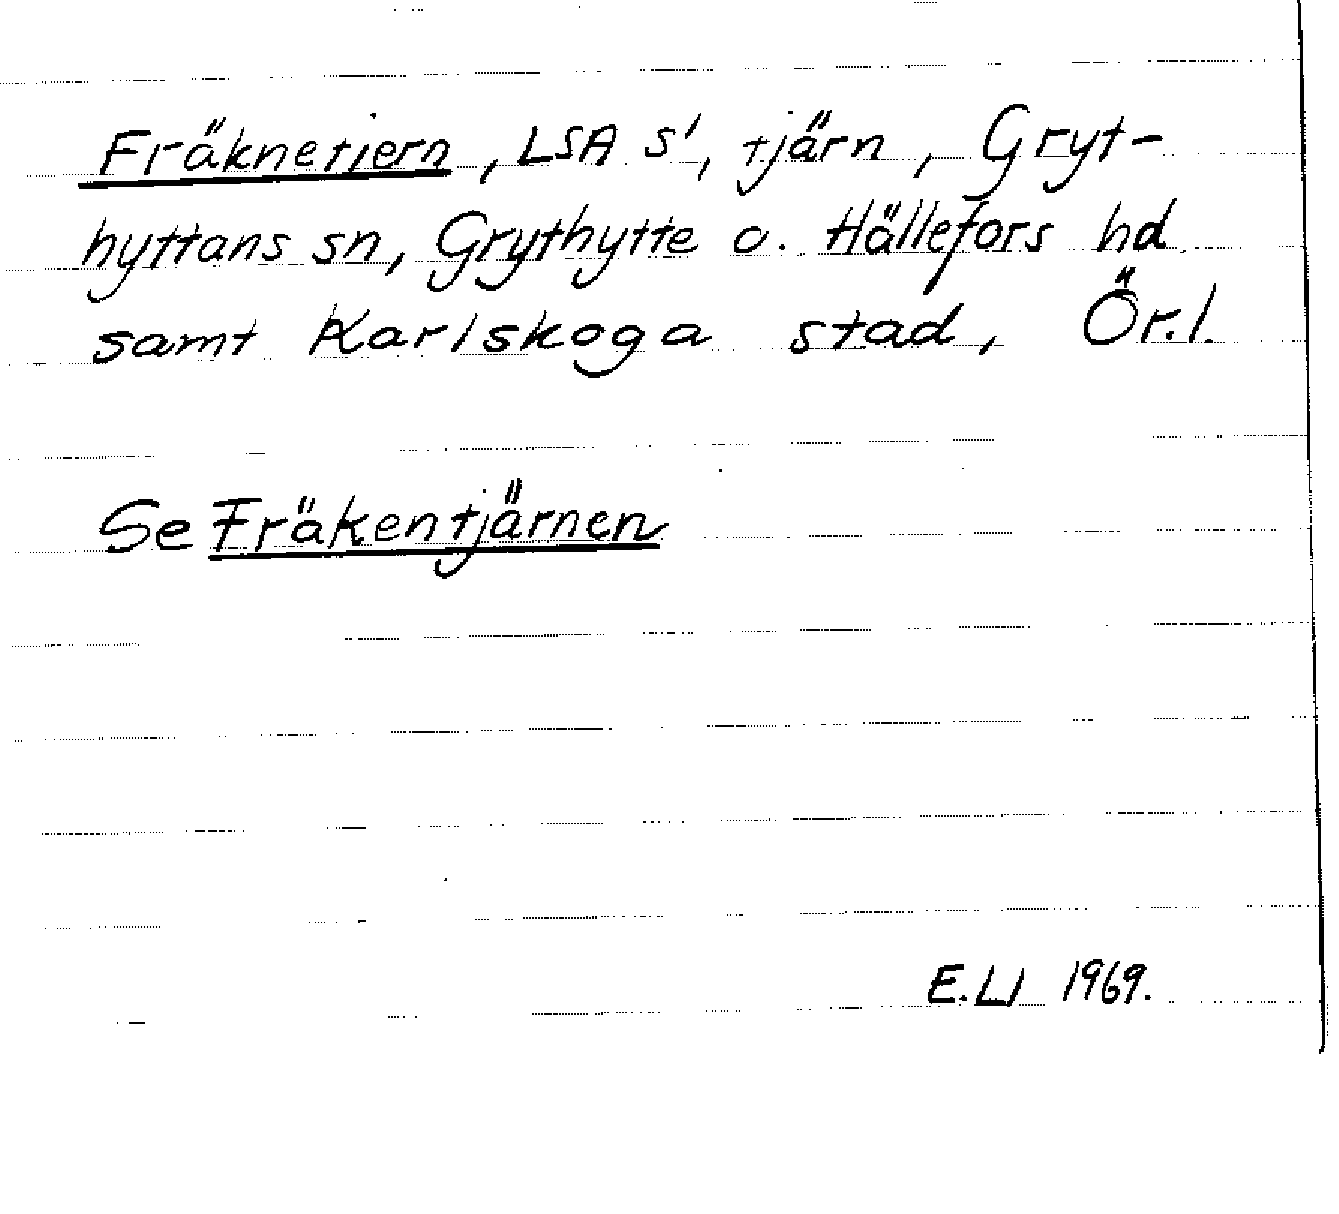 Fräknetiern, LSA S1, tjärn, Gryt-
hyttans sn, Grythytte o. Hällefors hd
samt Karlskoga stad, Ör.l.
Se Fräkentjärnen
E.LI 1969.